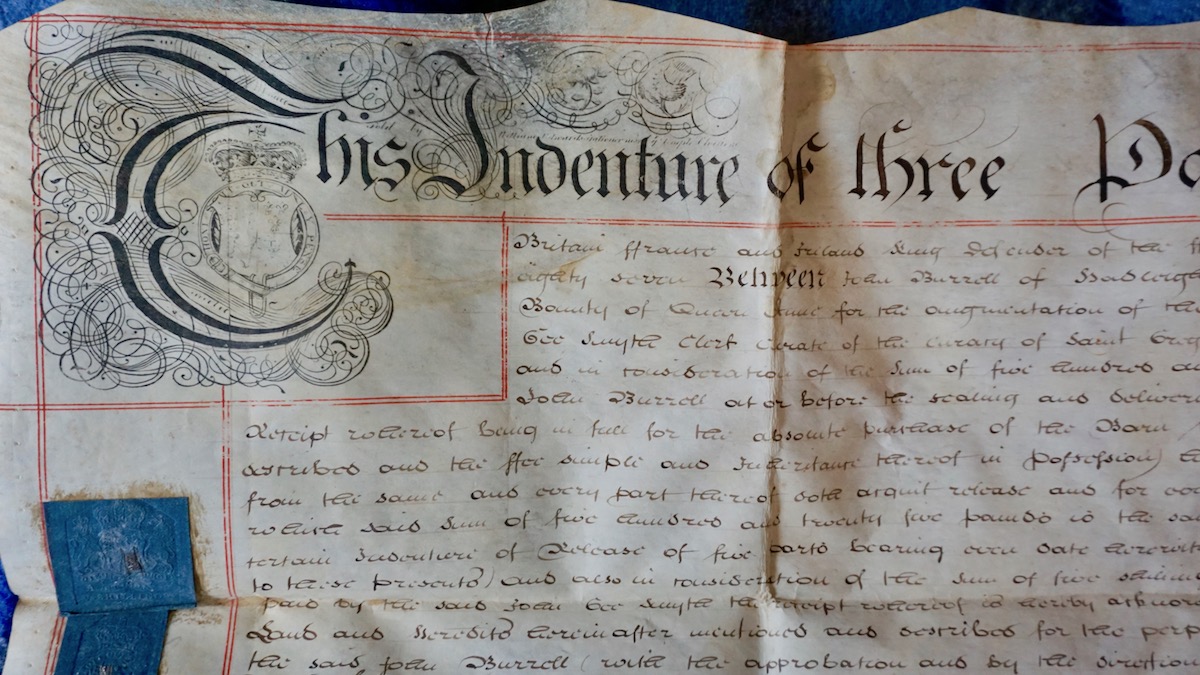 This Indenture of three Pa
Sold by
Britain ffrance and Ireland King Defender of the f
eighty seven Between John Burrell of
Bounty of Queen Anne for the augmentation of the
Gee Smyth Clerk Curate of the Curacy of Saint
and in consideration of the Sum of five hundred a
John Burrell at or before the sealing and deliver
Receipt whereof being in full for the absolute purchase of the Barn
described and the ffee simple and Inheritance thereof in Possession)
from the same and every part thereof doth acquit release and for
which said Sum of five hundred and twenty five pounds is the sa
certain Indenture of Release of five parts bearing even date herewit
to these presents) and also in consideration of the Sum of five
paid by the said John Gee Smyth the receipt whereof is hereby acknow
Land and Heredits hereinafter mentioned and described for the
the said John Burrell (with the approbation and by the direction